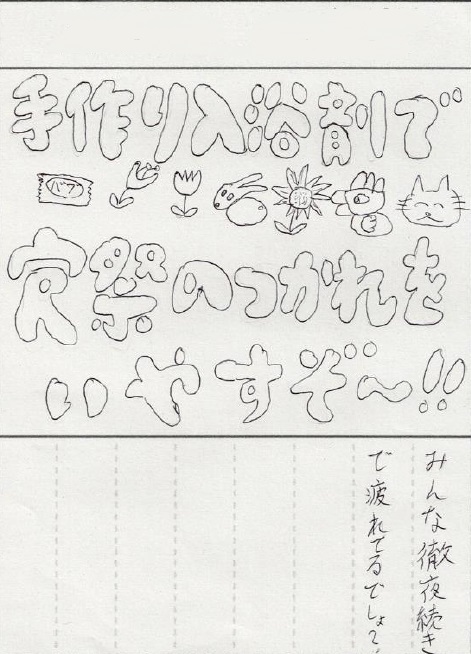 手作り入浴剤で
バブ
穴祭のつかれを
いやすぞ～!!
みんな徹夜続き
で疲れてるでしょ？